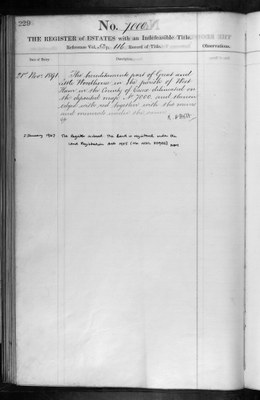 229
No. 7000
THE REGISTER of ESTATES with an Indefeasible Title.
Reference Vol. 116. Record of Title.
Observations.
Date of Entry.
Description.
21st Nov 1891. The hereditaments part of Great and
in the parish of West
Ham in the County of Essex delineated on
the deposited map No 7000 and thereon
edged with red together with the mines
and minerals under the same
5 January 1923 The Register closed. The land is registered under the
Land Registration Act 1925